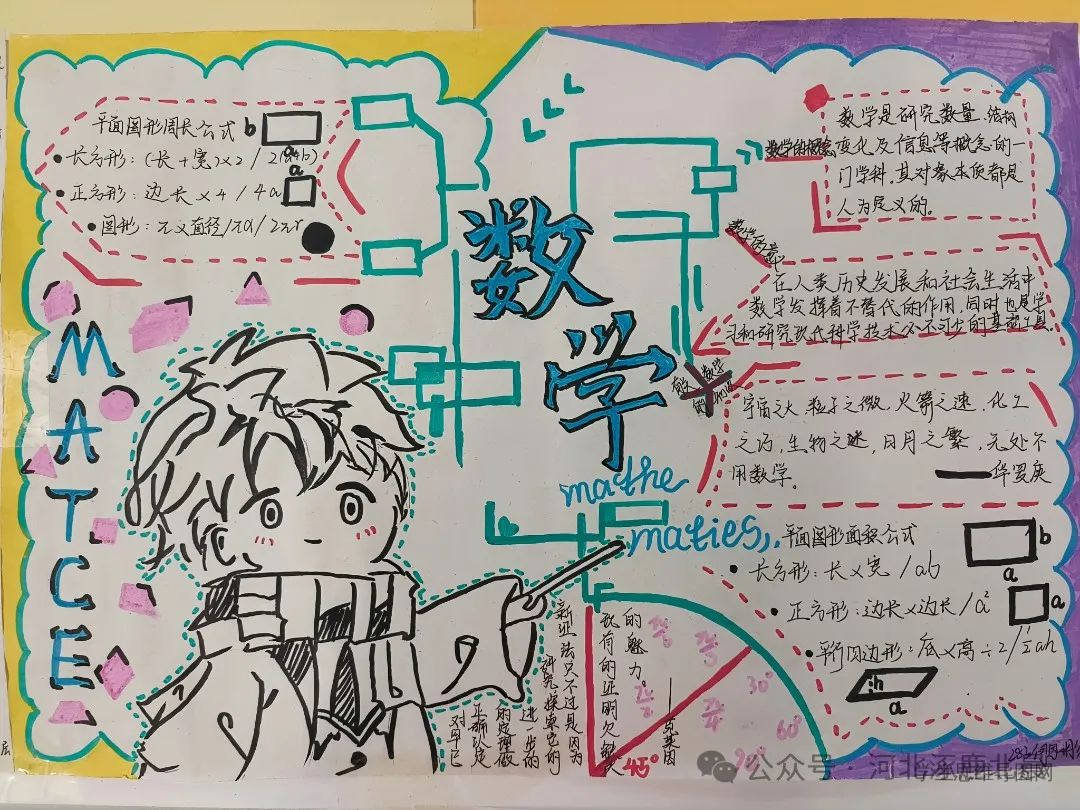 平面图形周长公式 b
• 长方形：(长+宽)×2 / 2(a+b)
a
• 正方形：边长×4 / 4a
a
• 图形：π×直径/πd/2πr
MATCE
数学
mathe
maties,
数学的概念
数学是研究数量、结构
变化及信息等概念的一
门学科，其对象本质都是
人为定义的。
在人类历史发展和社会生活中
数学发挥着不替代的作用，同时也是学
习和研究现代科学技术必不可少的基础工具
宇宙之大，粒子之微，火箭之速，化工
之巧，生物之迷，日月之繁，无处不
用数学。
——华罗庚
平面图形面积公式
b
a
• 长方形：长×宽/ab
• 正方形：边长×边长/a²
a
• 平行四边形：底×高÷2/½ah
h
a
对早已
正确认定
的定理做
进一步的
研究探索它的
新证法只不过是因为
现有的证明欠缺
的魅力。
——克莱因
30°
60°
90°
45°
公众号·河北涿鹿北